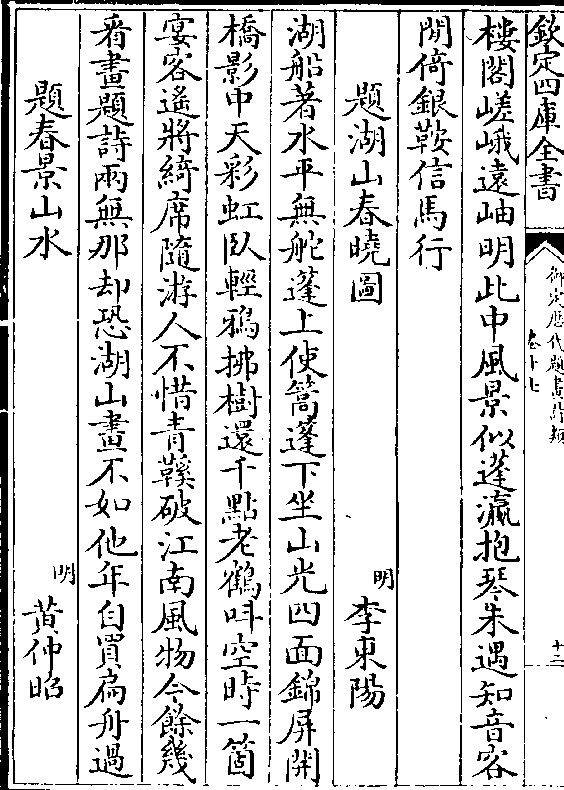 欽定四庫全書
御定歷代題畫詩類
卷十七
十二
樓閣嵯峨遠岫明此中風景似蓬瀛抱琴未遇知音客
閒倚銀鞍信馬行
題湖山春曉圖 明 李東陽
湖船著水平無舵蓬上使篙蓬下坐山光四面錦屏開
橋影中天彩虹臥輕鴉拂樹還千點老鶴呌空時一箇
宴客遙將綺席隨游人不惜青鞵破江南風物今餘幾
看畫題詩兩無那却恐湖山畫不如他年自買扁舟過
題春景山水 明 黃仲昭